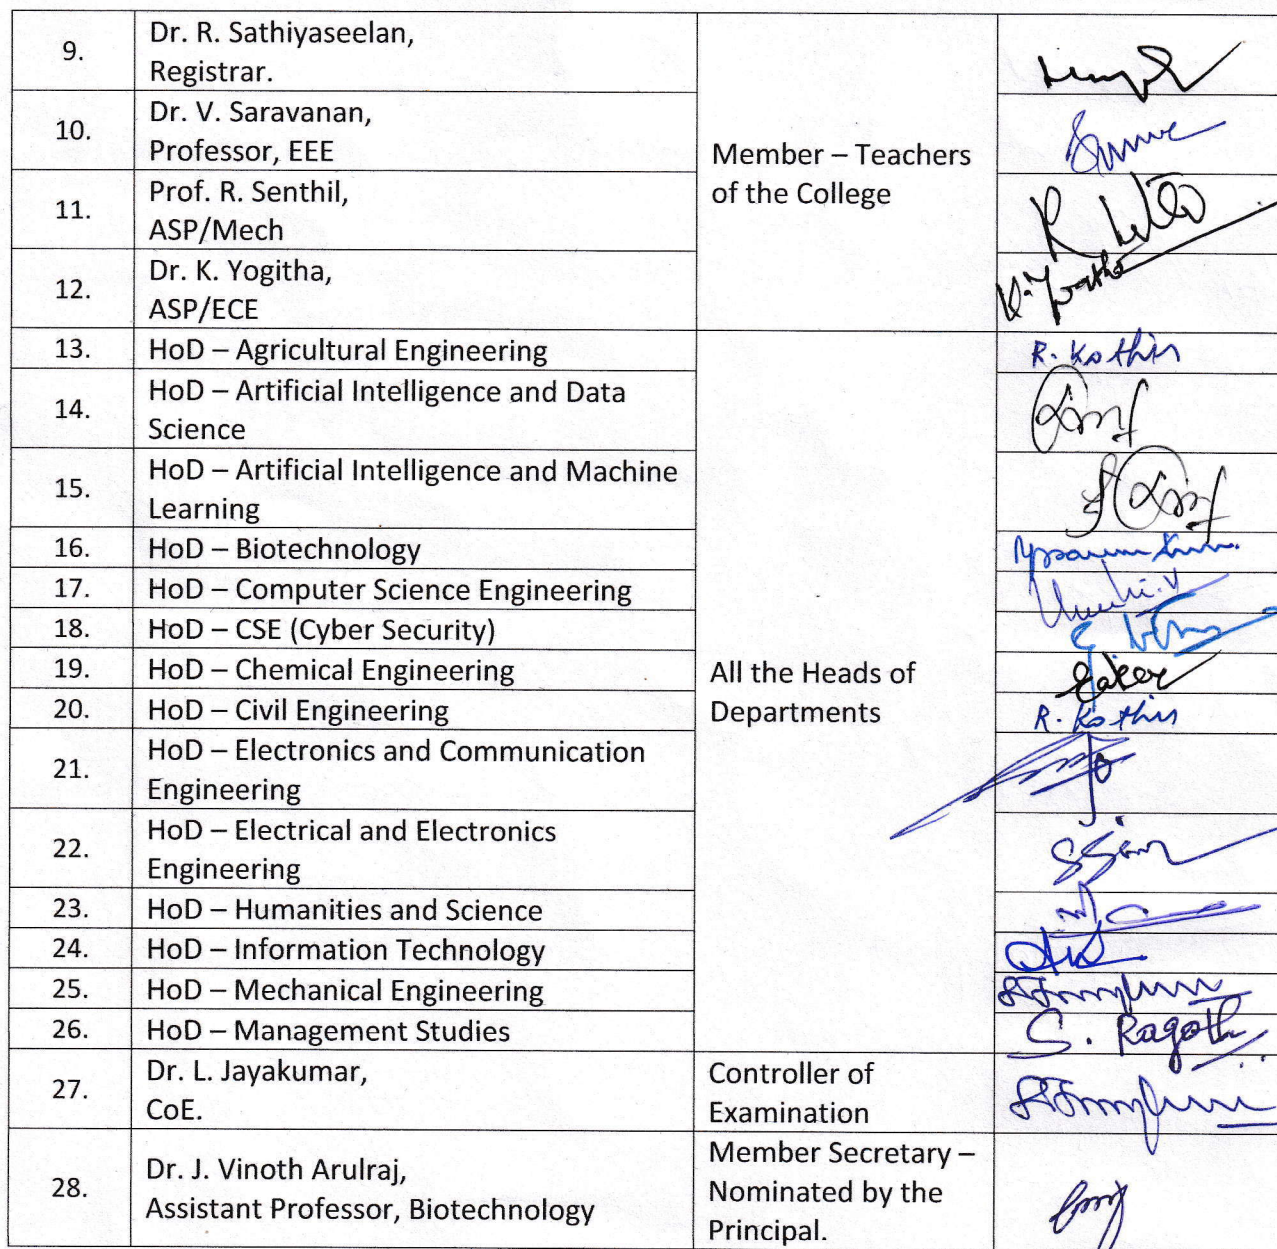 9.
Dr. R. Sathiyaseelan,
Registrar.
10.
Dr. V. Saravanan,
Professor, EEE
Member – Teachers
of the College
11.
Prof. R. Senthil,
ASP/Mech
12.
Dr. K. Yogitha,
ASP/ECE
13.
HoD – Agricultural Engineering
R. Kothin
14.
HoD – Artificial Intelligence and Data
Science
15.
HoD – Artificial Intelligence and Machine
Learning
16.
HoD – Biotechnology
17.
HoD – Computer Science Engineering
18.
HoD – CSE (Cyber Security)
19.
HoD – Chemical Engineering
All the Heads of
Departments
20.
HoD – Civil Engineering
R. Kothin
21.
HoD – Electronics and Communication
Engineering
22.
HoD – Electrical and Electronics
Engineering
23.
HoD – Humanities and Science
24.
HoD – Information Technology
25.
HoD – Mechanical Engineering
26.
HoD – Management Studies
S. Ragoth
27.
Dr. L. Jayakumar,
CoE.
Controller of
Examination
28.
Dr. J. Vinoth Arulraj,
Assistant Professor, Biotechnology
Member Secretary –
Nominated by the
Principal.